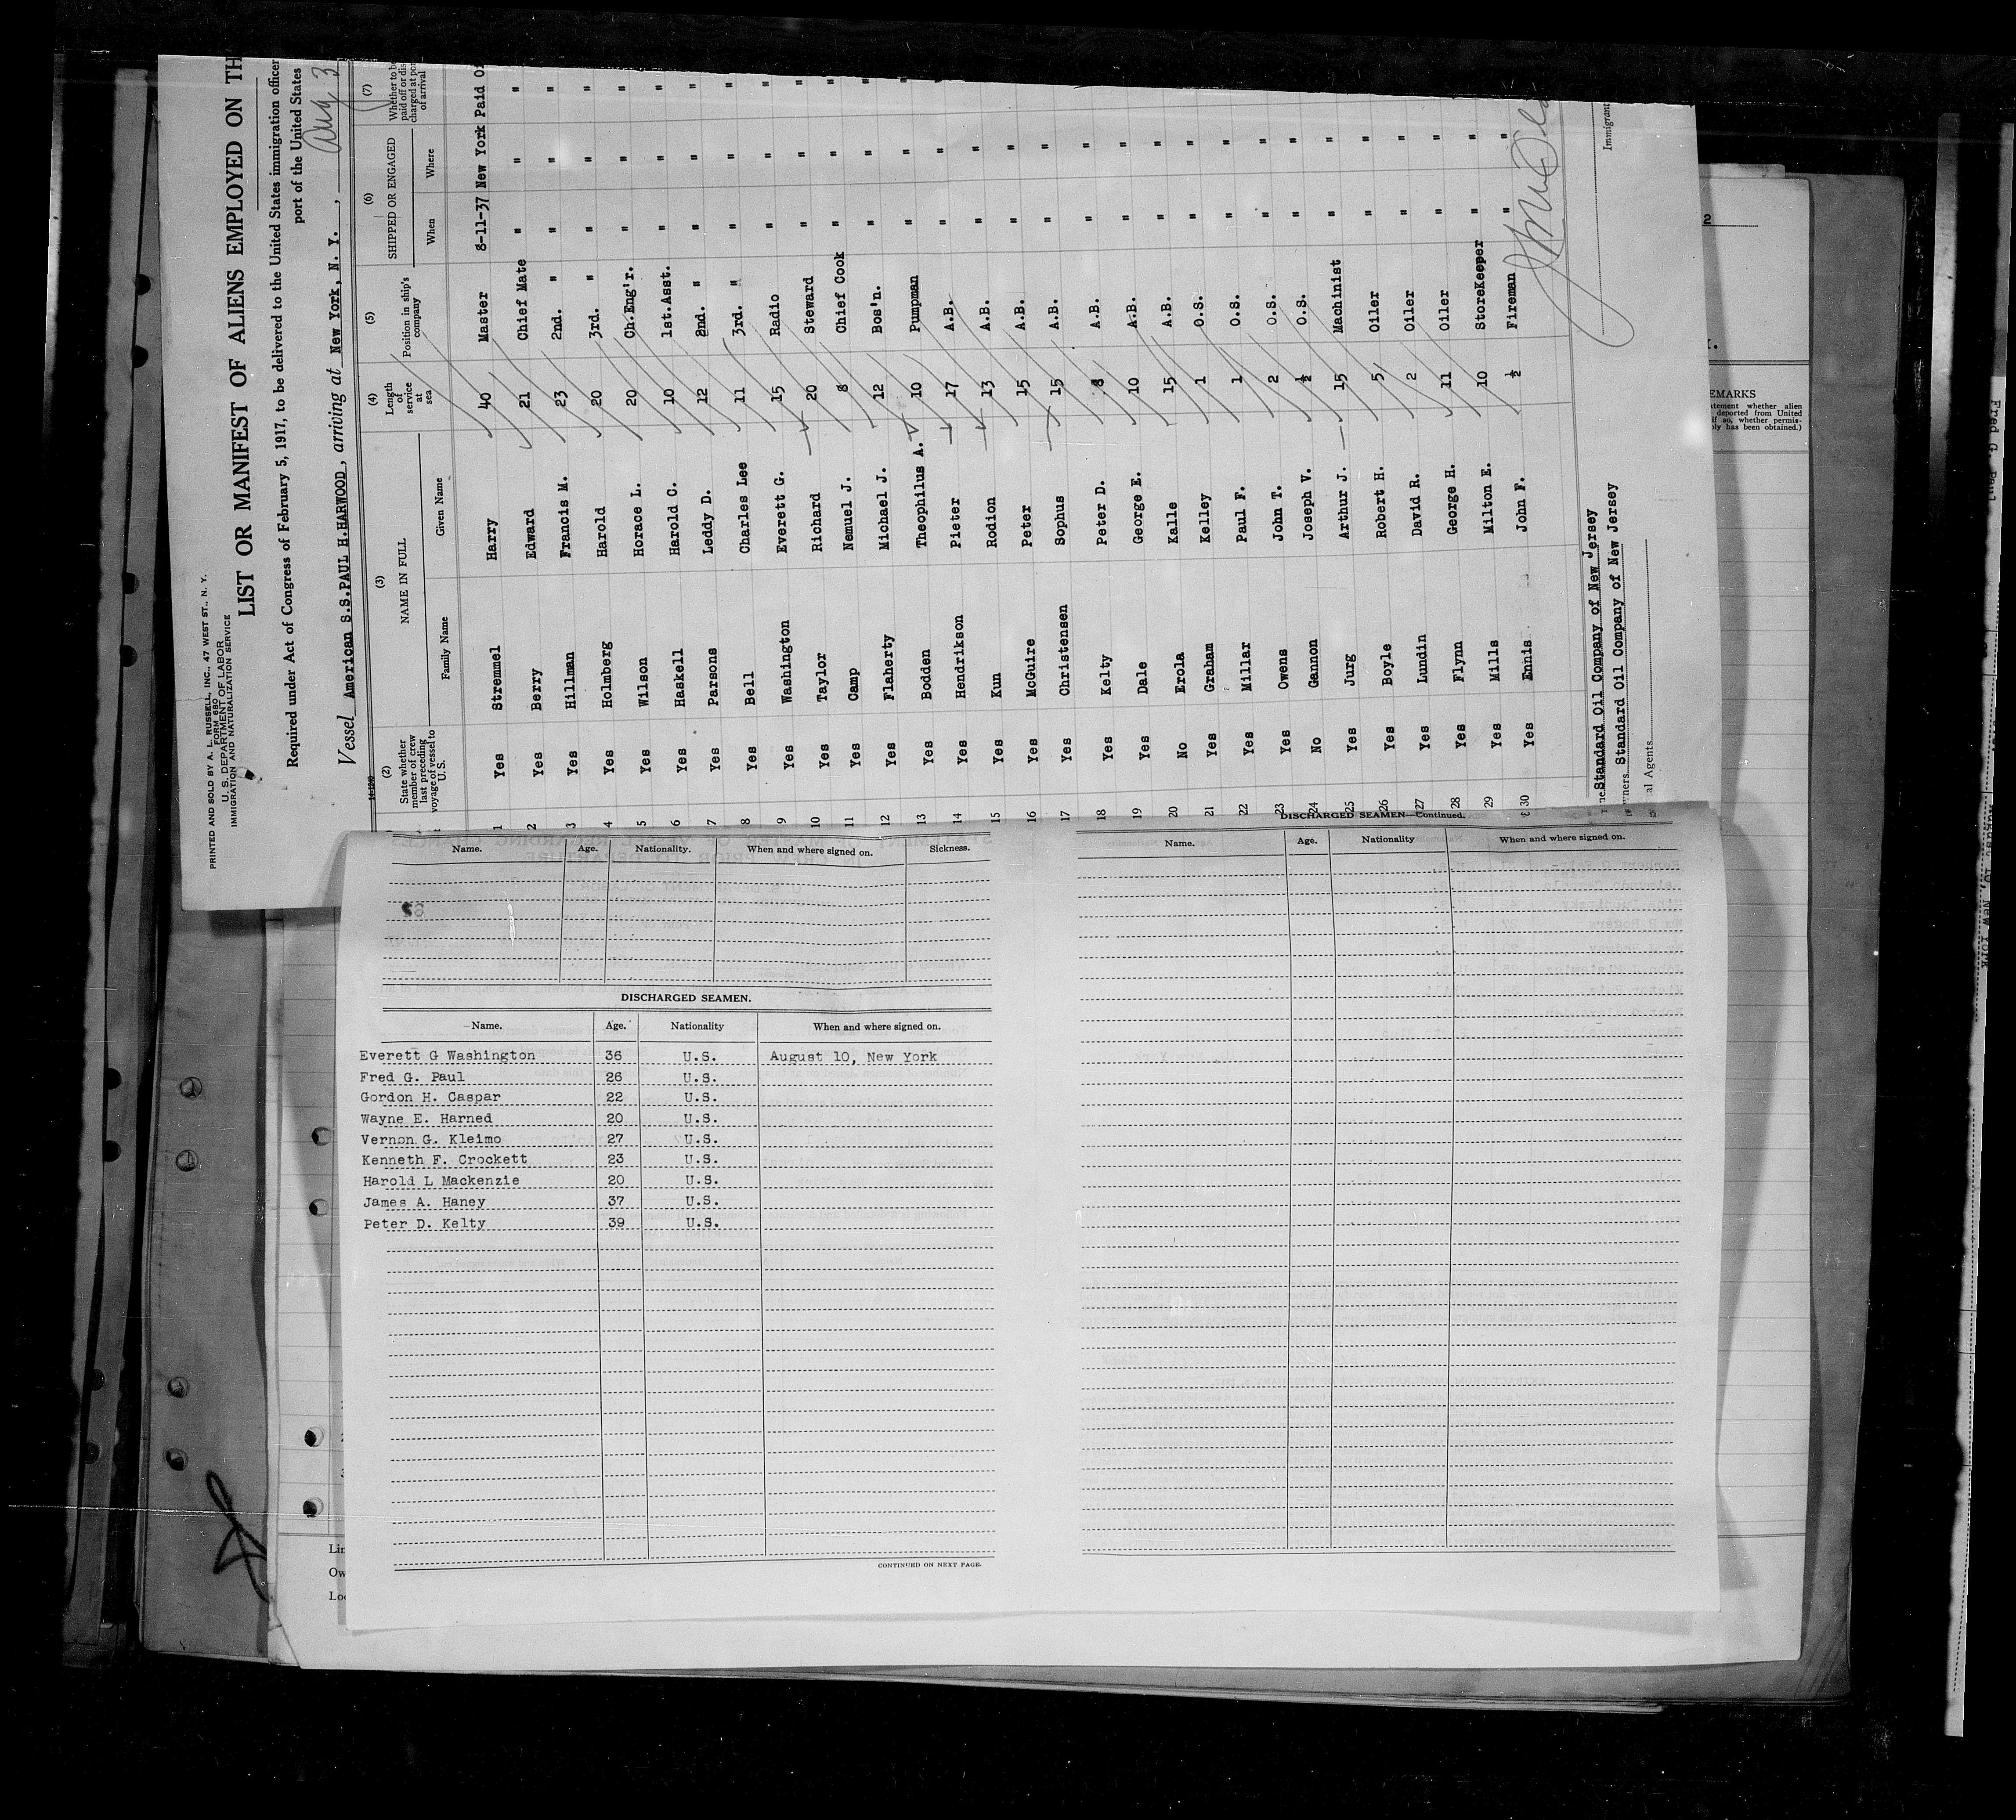 PRINTED AND SOLD BY A. L. RUSSELL, INC., 47 WEST ST., N. Y.
FORM 680
U. S. DEPARTMENT OF LABOR
IMMIGRATION AND NATURALIZATION SERVICE
LIST OR MANIFEST OF ALIENS EMPLOYED ON TH
Required under Act of Congress of February 5, 1917, to be delivered to the United States immigration officer
port of the United States
Vessel American S.S.PAUL H.HARWOOD, arriving at New York, N. Y., Aug 3
(2) (3) (4) (5) (6) (7)
State whether member of crew last preceding voyage of vessel to U.S. NAME IN FULL Family Name Given Name Length of service at sea Position in ship's company SHIPPED OR ENGAGED When Where Whether to be paid off or dis charged at port of arrival
1 Yes Stremmel Harry 40 Master 8-11-37 New York Paid Of
2 Yes Berry Edward 21 Chief Mate " " "
3 Yes Hillman Francis M. 23 2nd. " " " "
4 Yes Holmberg Harold 20 3rd. " " " "
5 Yes Wilson Horace L. 20 Ch.Eng'r. " " "
6 Yes Haskell Harold C. 10 1st.Asst. " " "
7 Yes Parsons Leddy D. 12 2nd. " " " "
8 Yes Bell Charles Lee 11 3rd. " " " "
9 Yes Washington Everett G. 15 Radio " " "
10 Yes Taylor Richard 20 Steward " " "
11 Yes Camp Nemuel J. 8 Chief Cook " " "
12 Yes Flaherty Michael J. 12 Bos'n. " " "
13 Yes Bodden Theophilus A. 10 Pumpman " " "
14 Yes Hendrikson Pieter 17 A.B. " "
15 Yes Kun Rodion 13 A.B. " "
16 Yes McGuire Peter 15 A.B. " "
17 Yes Christensen Sophus 15 A.B. " "
18 Yes Kelty Peter D. 8 A.B. " "
19 Yes Dale George E. 10 A.B. " "
20 No Erola Kalle 15 A.B. " "
21 Yes Graham Kelley 1 O.S. " "
22 Yes Millar Paul F. 1 O.S. " "
23 Yes Owens John T. 2 O.S. " "
24 No Gannon Joseph V. ½ O.S. " "
25 Yes Jurg Arthur J. 15 Machinist " "
26 Yes Boyle Robert H. 5 Oiler " "
27 Yes Lundin David R. 2 Oiler " "
28 Yes Flynn George H. 11 Oiler " "
29 Yes Mills Milton E. 10 StoreKeeper " "
30 Yes Ennis John F. ½ Fireman " "
Standard Oil Company of New Jersey
Standard Oil Company of New Jersey
al Agents
Immigrant
EMARKS
atement whether alien
deported from United
if so, whether permis-
ply has been obtained.)
Fred G. Paul
August 10, New York
Name. Age. Nationality. When and where signed on. Sickness.
DISCHARGED SEAMEN.
Name. Age. Nationality When and where signed on.
Everett G Washington 36 U.S. August 10, New York
Fred G. Paul 26 U.S.
Gordon H. Caspar 22 U.S.
Wayne E. Harned 20 U.S.
Vernon G. Kleimo 27 U.S.
Kenneth F. Crockett 23 U.S.
Harold L Mackenzie 20 U.S.
James A. Haney 37 U.S.
Peter D. Kelty 39 U.S.
CONTINUED ON NEXT PAGE.
DISCHARGED SEAMEN—Continued.
Name. Age. Nationality When and where signed on.
Lin
Ow
Loc